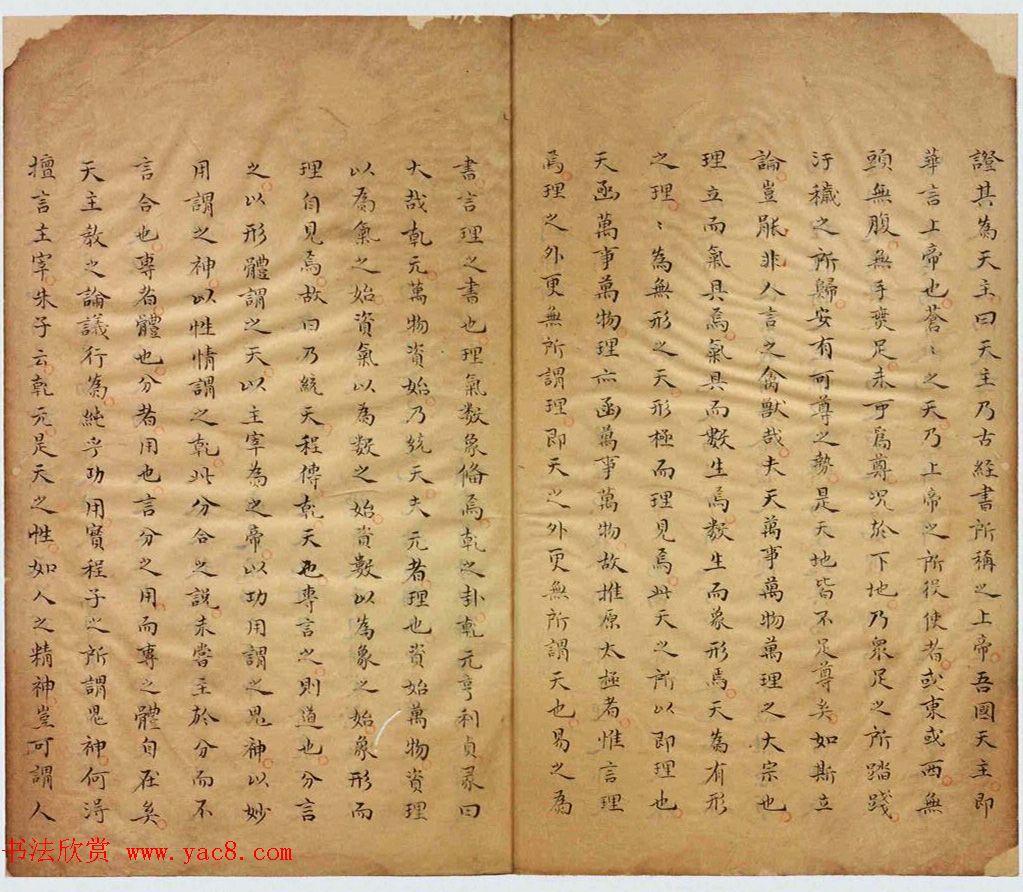 證其為天主曰天主乃古經書所稱之上帝吾國天主即
華言上帝也蒼〻之天乃上帝之所役使者或東或西無
頭無腹無手無足未可為尊况於下地乃衆足之所踏踐
汙穢之所歸安有可尊之勢是天地皆不足尊矣如斯立
論豈能非人言之禽獸哉夫天萬事萬物萬理之大宗也
理立而氣具焉氣具而數生焉數生而象形焉天為有形
之理〻為無形之天形極而理見焉此天之所以即理也
天函萬事萬物理亦函萬事萬物故推原太極者惟言理
焉理之外更無所謂理即天之外更無所謂天也易之為
書言理之書也理氣数象俻焉乾之卦乾元亨利貞彖曰
大哉乾元萬物資始乃統天夫元者理也資始萬物資理
以為氣之始資氣以為数之始資數以為象之始象形而
理自見焉故曰乃統天程傳乾天也專言之則道也分言
之以形體謂之天以主宰為之帝以功用謂之鬼神以妙
用謂之神以性情謂之乾此分合之説未嘗主於分而不
言合也專者體也分者用也言分之用而專之體自在矣
天主敎之論議行為純乎功用實程子之所謂鬼神何淂
擅言主宰朱子云乾元是天之性如人之精神豈可謂人
书法欣赏 www.yac8.com